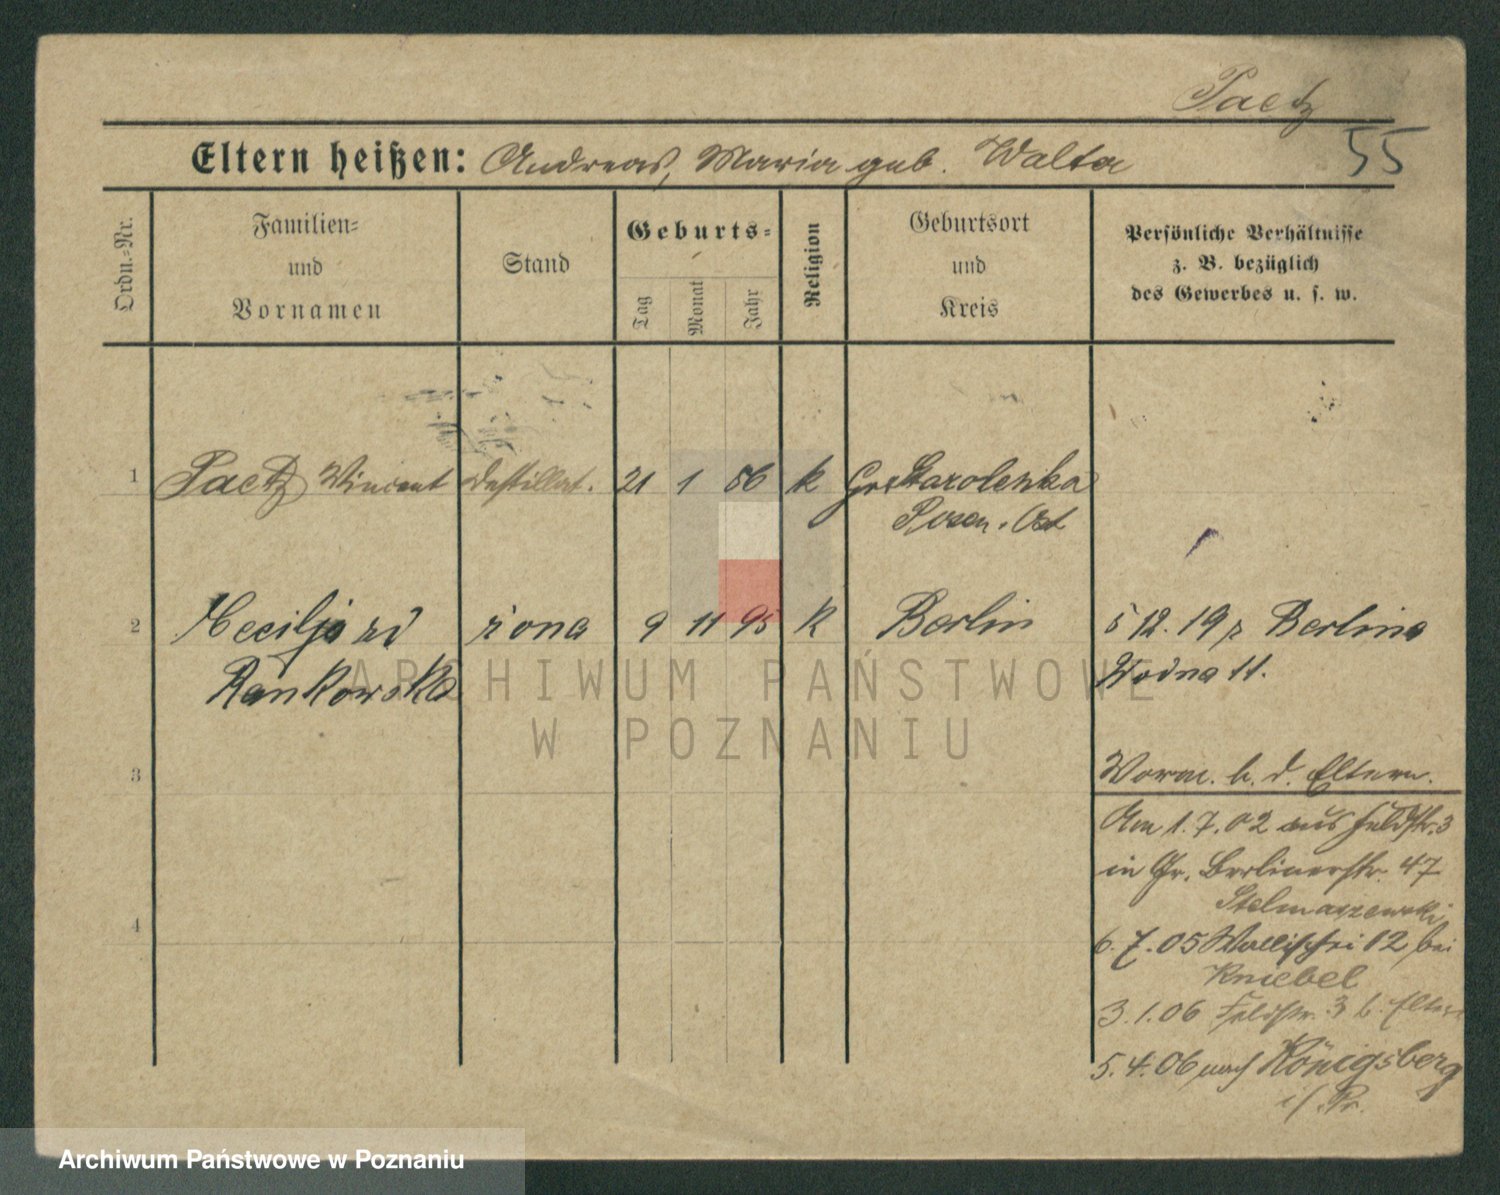 Paetz
55
Eltern heißen: Andreas, Maria geb. Walta
Ordn.-Nr.
Familien-
und
Vornamen
Stand
Geburts-
Tag
Monat
Jahr
Religion
Geburtsort
und
Kreis
Persönliche Verhältnisse
z. B. bezüglich
des Gewerbes u. s. w.
1 Paetz Vincent Destillat. 21 1 86 k Gr Starolenka
Posen. Ost
2 Cecilja zd żona 9 11 95 k Berlin 5 12. 19 z Berlina
Rankowska Wodna 11.
3 Vorm. b. d. Eltern.
Am 1. 7. 02 aus Feldstr. 3
in Gr. Berlinerstr. 47
Stelmaszewski
4
6. 7. 05 Wallischei 12 bei
Kniebel
3. 1. 06 Feldstr. 3 b. Eltern
5. 4. 06 nach Königsberg
i/ Pr.
ARCHIWUM PAŃSTWOWE
W POZNANIU
Archiwum Państwowe w Poznaniu